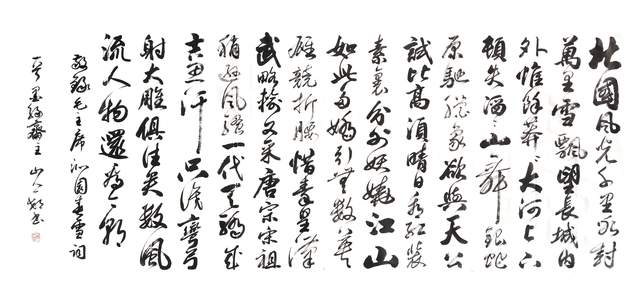 北國風光千里冰封
萬里雪飄望長城內
外惟餘莽〻大河上下
頓失滔〻山舞銀蛇
原馳蠟象欲與天公
試比高須晴日看紅裝
素裹分外妖嬈江山
如此多嬌引無數英
雄競折腰惜秦皇漢
武略輸文采唐宗宋祖
稍遜風騷一代天驕成
吉思汗只識彎弓
射大雕俱往矣數風
流人物還看今朝
敬錄毛主席沁園春雪詞
墨緣齋主山 書